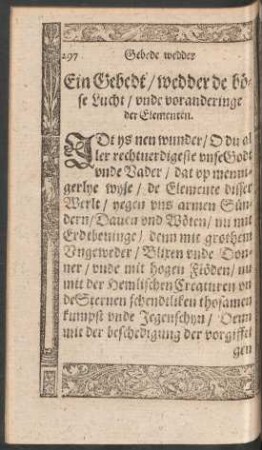 297 Gebede wedder
Ein Gebedt / wedder de bö-
se Lucht / vnde voranderinge
der Elementen.
IDt ys nen wunder / O du al
ler rechtuerdigeste vnse Godt
vnde Vader / dat vp menni
gerlye wyse / de Elemente disser
Werlt / yegen vns armen Sün-
dern / Dauen vnd Wöten / nu mit
Erdtbeuinge / denn mit grothem
Vngeweder / Blixen vnde Don-
ner / vnde mit hogen Flöden / nu
mit der Hemlischen Creaturen vn
de Sternen schendtliken thosamen
kumpst vnde Jegenschyn / Denn
mit der beschedigung der vorgifft
gen